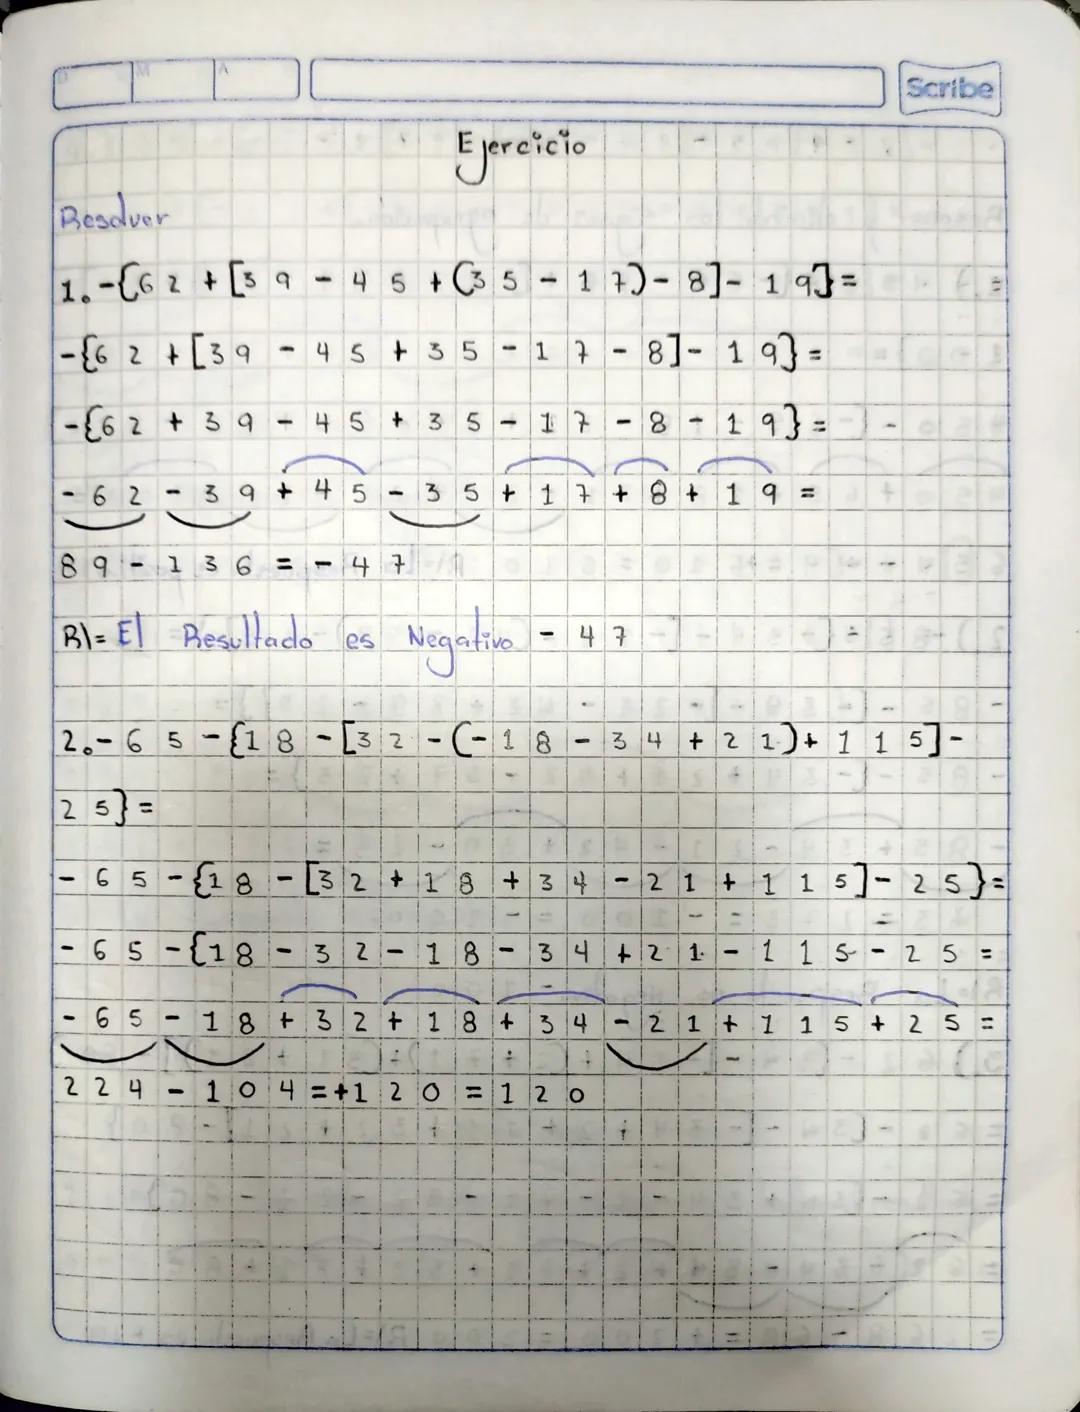 D M A
Scribe
Ejercicio
Resolver
1.-{62+[39-45+(35-17)-8]-19}=
-{62+[39-45+35-17-8]-19}=
-{62+39-45+35-17-8-19}=
-62-39+45-35+17+8+19=
89-136=-47
R\= El Resultado es Negativo -47
2.-65-{18-[32-(-18-34+21)+115]-
25}=
-65-{18-[32+18+34-21+115]-25}=
-65-{18-32-18-34+21-115-25=
-65-18+32+18+34-21+115+25=
224-104=+120=120